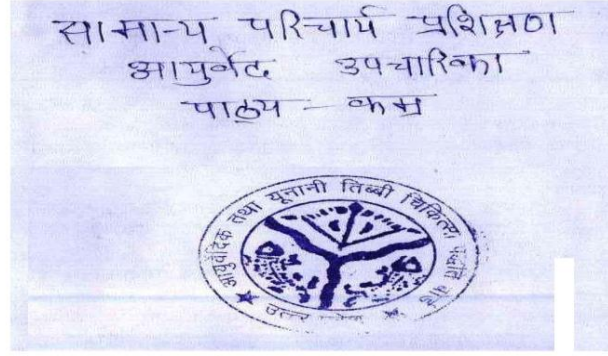 सामान्य परिचार्य प्रशिक्षण
आयुर्वेद उपचारिका
पाठ्य - क्रम
आयुर्वेदिक तथा यूनानी तिब्बी चिकित्सा पद्धति बोर्ड
उत्तर प्रदेश